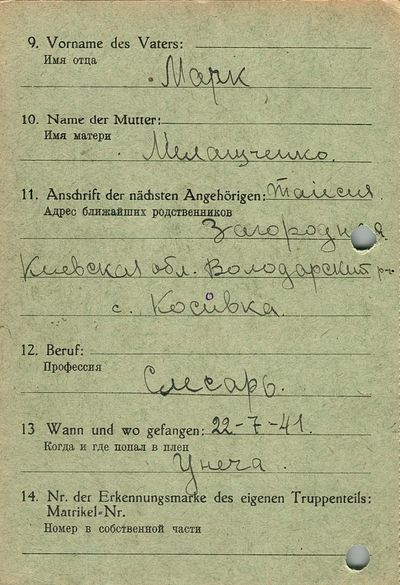 9. Vorname des Vaters:
Имя отца
Марк
10. Name der Mutter:
Имя матери
Мелащченко.
11. Anschrift der nächsten Angehörigen: Таисия
Адрес ближайших родственников
Загородная
Киевская обл. Володарский р-н
с. Косивка
12. Beruf:
Профессия
Слесарь.
13 Wann und wo gefangen: 22-7-41.
Когда и где попал в плен
Унеча.
14. Nr. der Erkennungsmarke des eigenen Truppenteils:
Matrikel-Nr.
Номер в собственной части